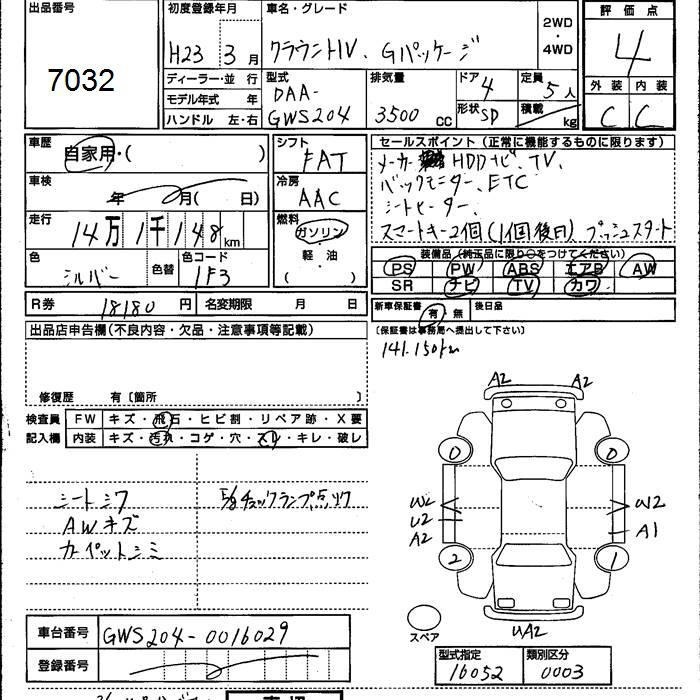 出品番号
7032
初度登録年月
H23 3月
車名・グレード
クラウンHV、Gパッケージ
2WD
・
4WD
評価点
4
ディーラー・並行
モデル年式 年
ハンドル 左・右
型式
DAA-
GWS204
排気量
3500 CC
ドア 4
形状 SD
定員
5人
積載
kg
外装 内装
C C
車歴
自家用・( )
シフト
FAT
車検
年 月(日)
冷房
AAC
走行
14万1千148km
燃料
ガソリン
・
軽・油
( )
色
シルバー
色替
色コード
1F3
R券 18180円
名変期限 月 日
セールスポイント(正常に機能するものに限ります)
メーカー HDDナビ、TV、
バックモニター、ETC
シートヒーター、
スマートキー2個(1個後日)プッシュスタート
装備品(純正品に限り○をつけてください)
PS PW ABS エアB AW
SR ナビ TV カワ
新車保証書 有・無 後日品
(保証書は事務局へ提出して下さい)
141,150km
出品店申告欄(不良内容・欠品・注意事項等記載)
修復歴 有〔箇所 〕
検査員
記入欄
FW キズ・飛石・ヒビ割・リペア跡・X要
内装 キズ・汚れ・コゲ・穴・スレ・キレ・破レ
シートシワ
AWキズ
カーペットシミ
チェックランプ点灯
A2 A2
0 0
W2 W2
U2
A2 A1
2 1
スペア
UA2
車台番号 GWS204-0016029
登録番号
型式指定 類別区分
16052 0003